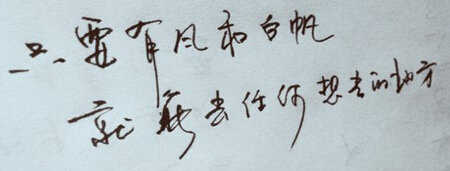 只要有风和白帆
就能去任何想去的地方